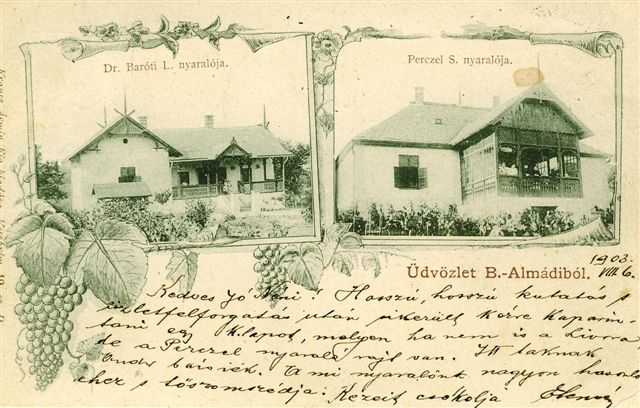 Dr. Baróti L. nyaralója.
Perczel S. nyaralója.
Üdvözlet B.-Almádiból.
1903.
VIII/6.
Kedves Jó Néni! Hosszú, hosszú kutatás s
üzletfelforgatás után sikerült kézre kaparin-
tani egy klapot, melyen ha nem is a
de a Perczel nyaraló rajt van. Itt laknak
A mi nyaralónk nagyon hasonló
ehez s tőszomszédja. Kezeit csókolja